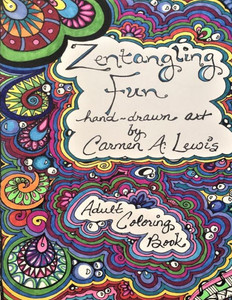 Zentangling
Fun
hand-drawn art
by
Carmen A. Lewis
Adult Coloring
Book